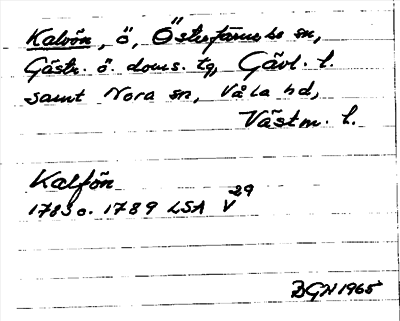 Kalvön, ö, Österfärnebo sn,
Gästr. ö. doms. tg, Gävl. l.
samt Nora sn, Våla hd,
Västm. l.
Kalfön
1783 o. 1789 LSA V29
BGN 1965